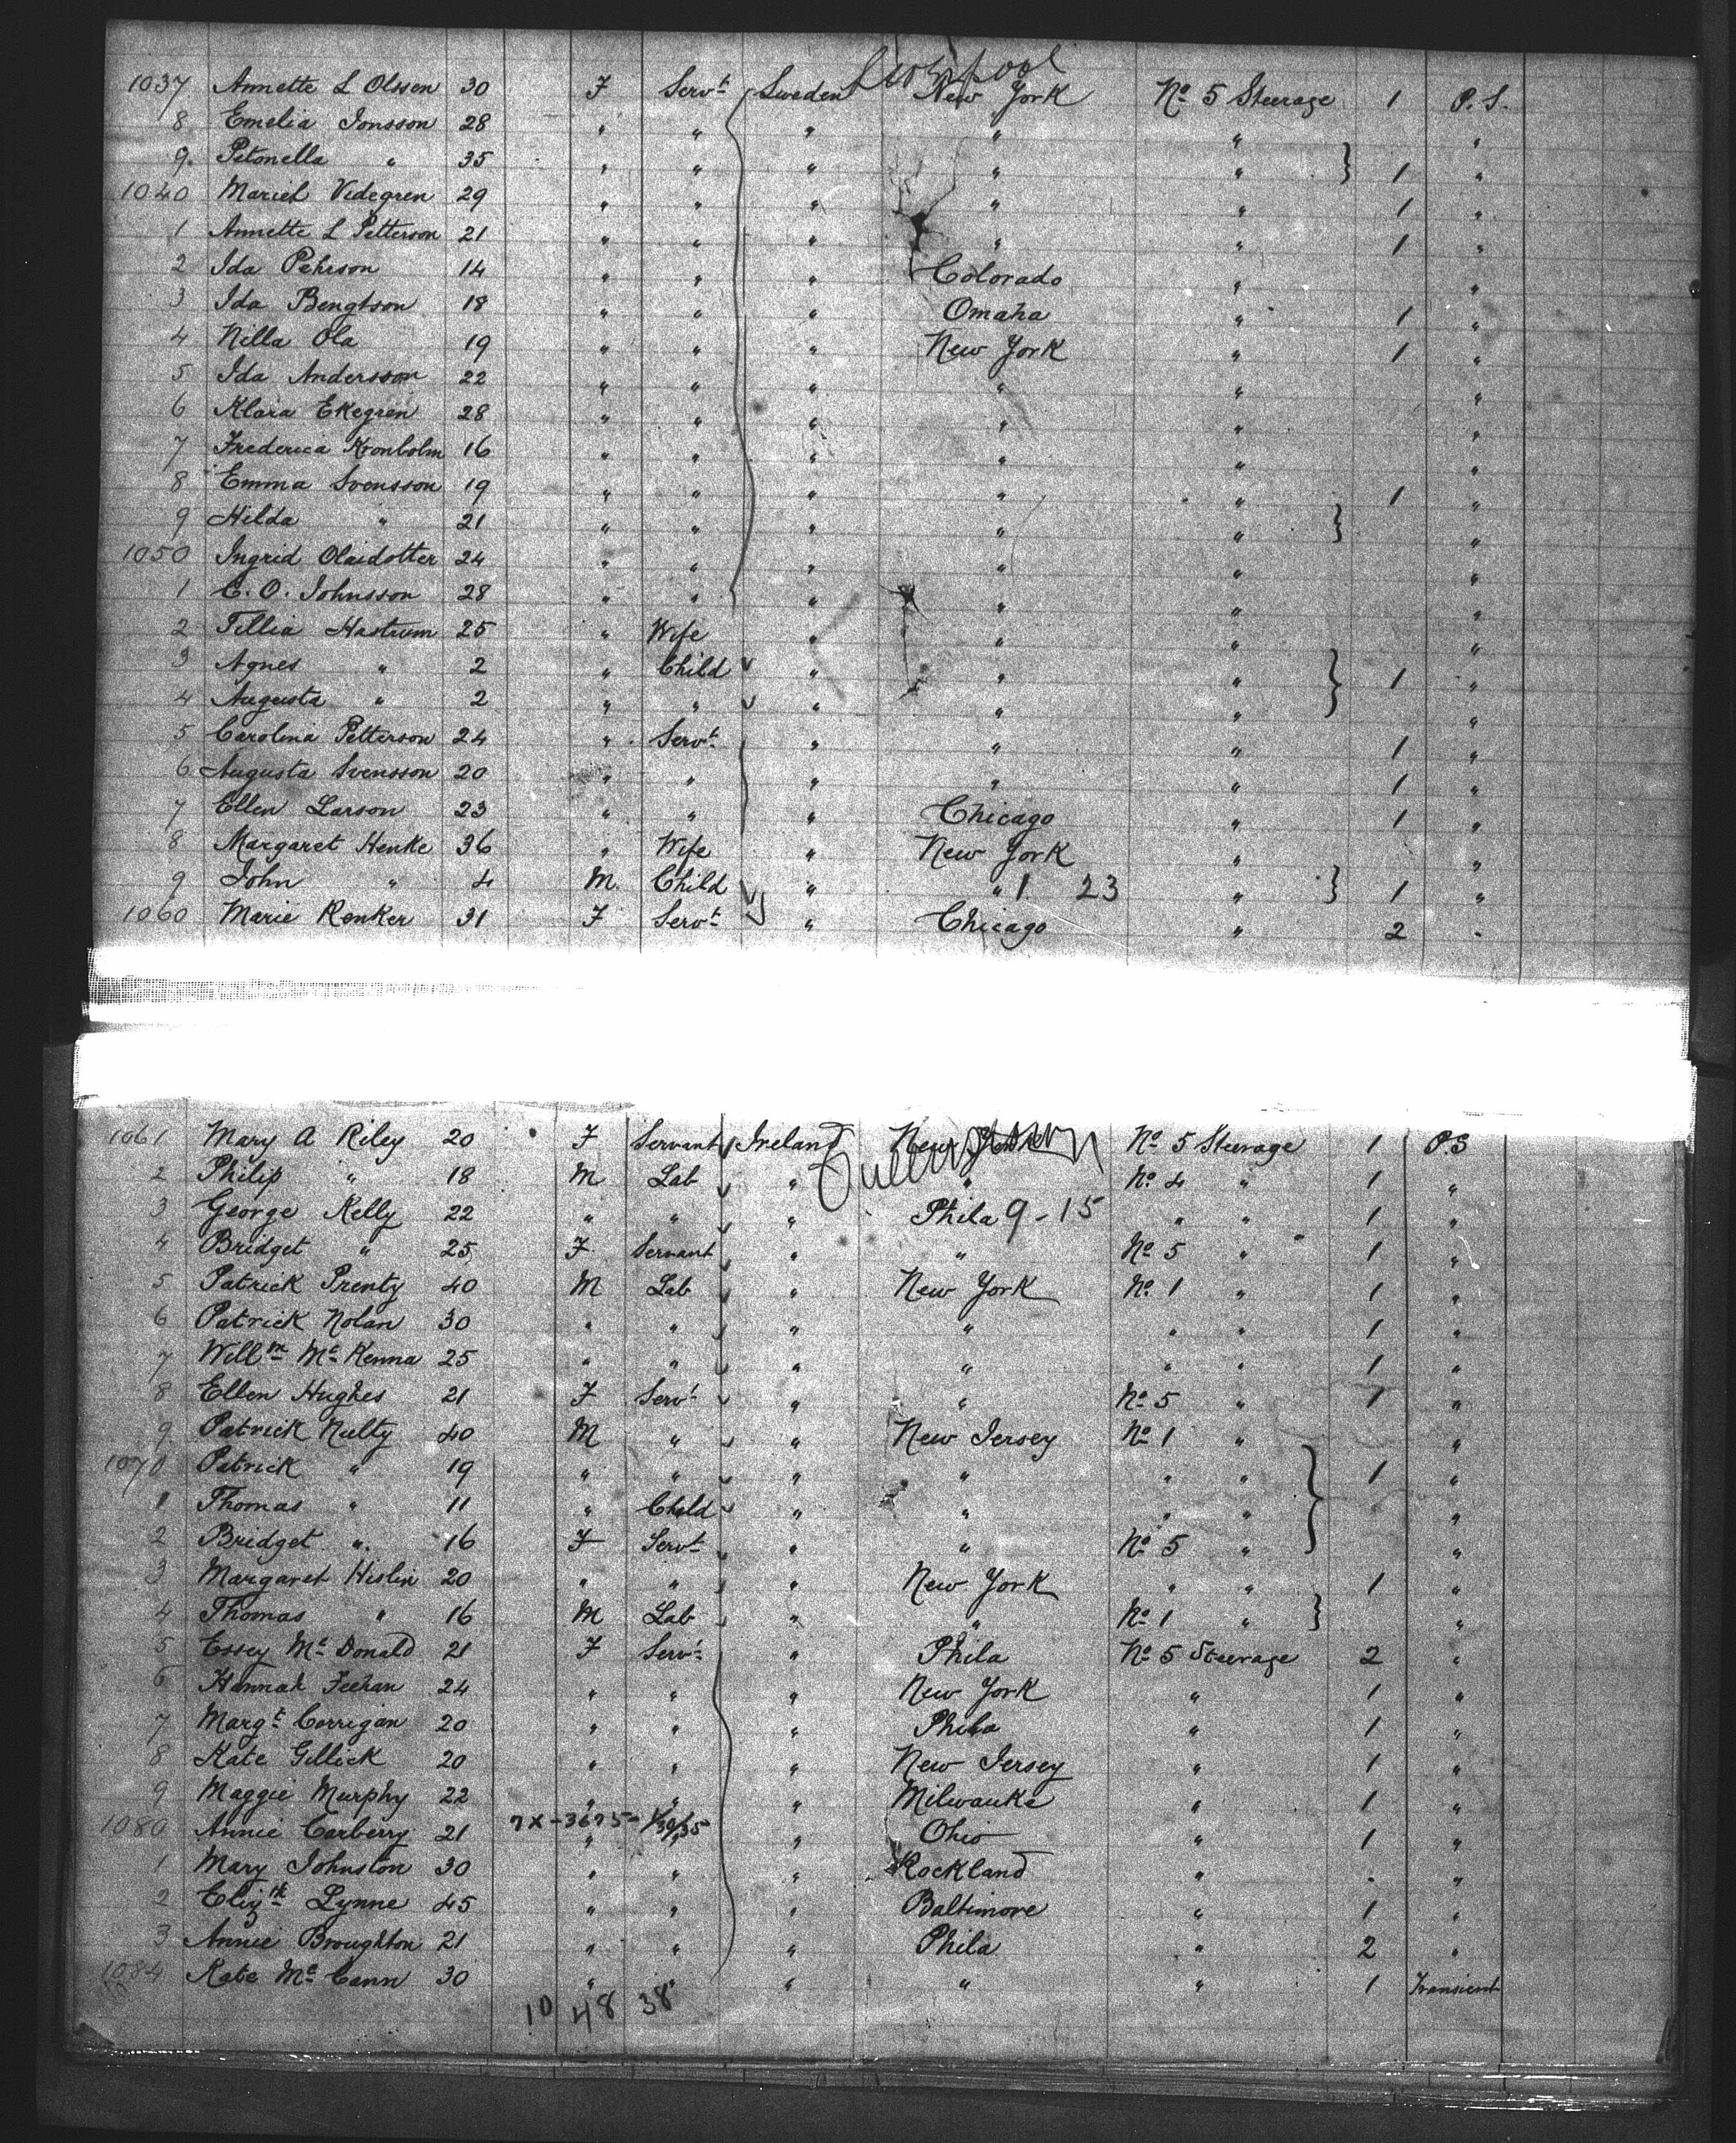 Liverpool
1037 Annette L Olssen 30 F Servt Sweden New York No 5 Steerage 1 P.S.
8 Emelia Jonsson 28 " " " " " "
9 Petonella " 35 " " " " " } 1 "
1040 Mariet Videgren 29 " " " " " 1 "
1 Annette L Petterson 21 " " " " " 1 "
2 Ida Pehrson 14 " " " Colorado " "
3 Ida Bengtson 18 " " " Omaha " 1 "
4 Nilla Ola 19 " " " New York " 1 "
5 Ida Andersson 22 " " " " " "
6 Klara Ekegren 28 " " " " " "
7 Frederica Kronholm 16 " " " " " "
8 Emma Svensson 19 " " " " " 1 "
9 Hilda " 21 " " " " " } "
1050 Ingrid Olaidotter 24 " " " " " "
1 C. O. Johnsson 28 " " " " " "
2 Tillia Hastrum 25 " Wife " " " "
3 Agnes " 2 " Child " " " } 1 "
4 Augusta " 2 " " " " " "
5 Carolina Petterson 24 " Servt " " " 1 "
6 Augusta Svensson 20 " " " " " 1 "
7 Ellen Larson 23 " " " Chicago " 1 "
8 Margaret Henke 36 " Wife " New York " "
9 John " 4 M. Child " " 1 23 " } 1 "
1060 Marie Renker 31 F Servt " Chicago " 2 "
1061 Mary A Riley 20 F Servant Ireland New York No 5 Steerage 1 P.S
Queenstown
2 Philip " 18 M Lab " " No 4 " 1 "
3 George Kelly 22 " " " Phila 9-15 " " 1 "
4 Bridget " 25 F Servant " " No 5 " 1 "
5 Patrick Prenty 40 M Lab " New York No 1 " 1 "
6 Patrick Nolan 30 " " " " " " 1 "
7 Willm Mc Kenna 25 " " " " " " 1 "
8 Ellen Hughes 21 F Servt " " No 5 " 1 "
9 Patrick Nulty 40 M " " New Jersey No 1 " "
1070 Patrick " 19 " " " " " " } 1 "
1 Thomas " 11 " Child " " " " "
2 Bridget " 16 F Servt " " No 5 " "
3 Margaret Hislin 20 " " " New York " " 1 "
4 Thomas " 16 M Lab " " No 1 " } "
5 Essey Mc Donald 21 F Servt " Phila No 5 Steerage 2 "
6 Hannah Feehan 24 " " " New York " 1 "
7 Margt Corrigan 20 " " " Phila " 1 "
8 Kate Gillick 20 " " " New Jersey " 1 "
9 Maggie Murphy 22 " " " Milwauke " 1 "
7X-3675-1/30/35
1080 Annie Carberry 21 " " " Ohio " 1 "
1 Mary Johnston 30 " " " Rockland " "
2 Elizth Lynne 45 " " " Baltimore " 1 "
3 Annie Broughton 21 " " " Phila " 2 "
1084 Kate Mc Cann 30 " " " " " 1 Transient
10 48 38